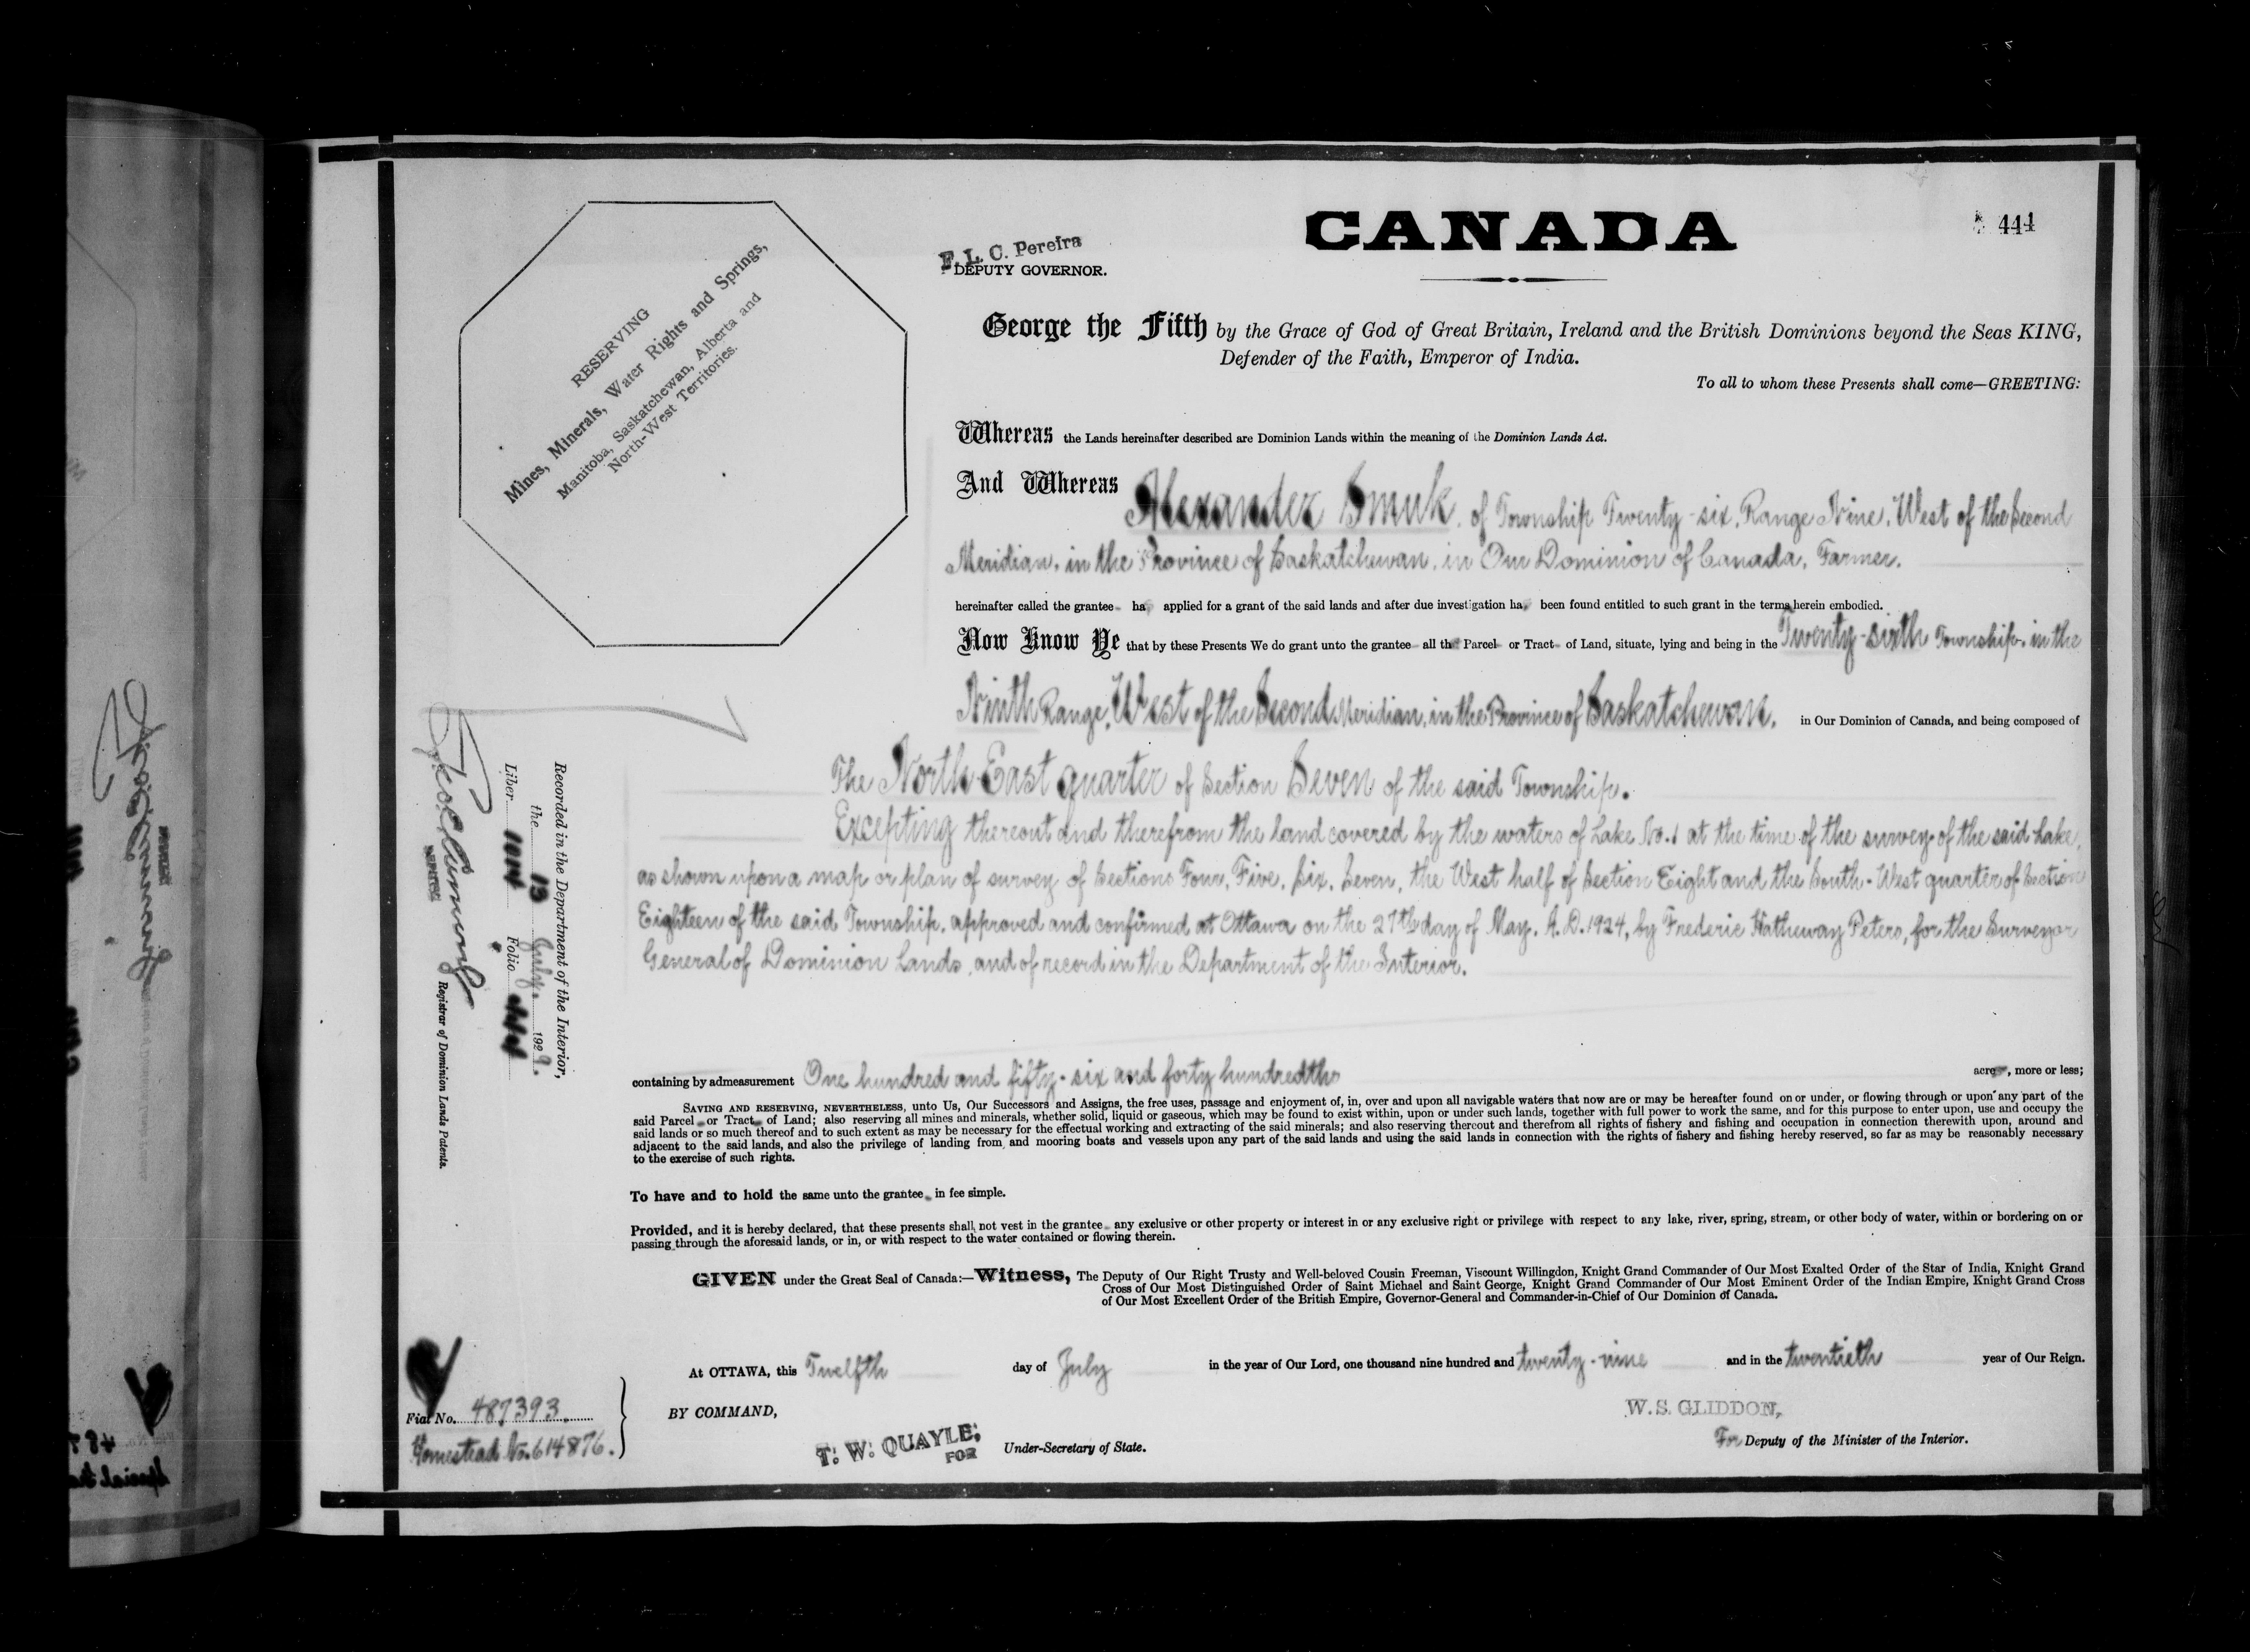 CANADA
444
F. L. C. Pereira
DEPUTY GOVERNOR.
RESERVING
Mines, Minerals, Water Rights and Springs,
Manitoba, Saskatchewan, Alberta and
North-West Territories.
George the Fifth by the Grace of God of Great Britain, Ireland and the British Dominions beyond the Seas KING,
Defender of the Faith, Emperor of India.
To all to whom these Presents shall come—GREETING:
Whereas the Lands hereinafter described are Dominion Lands within the meaning of the Dominion Lands Act.
And Whereas Alexander Smuk, of Township Twenty-six, Range Nine, West of the Second
Meridian, in the Province of Saskatchewan, in Our Dominion of Canada, Farmer,
hereinafter called the grantee ha applied for a grant of the said lands and after due investigation ha been found entitled to such grant in the terms herein embodied.
Now Know Ye that by these Presents We do grant unto the grantee all th Parcel or Tract of Land, situate, lying and being in the Twenty-sixth Township, in the
Ninth Range, West of the Second Meridian, in the Province of Saskatchewan, in Our Dominion of Canada, and being composed of
The North-East quarter of Section Seven of the said Township.
Excepting thereout and therefrom the land covered by the waters of Lake No. 1 at the time of the survey of the said Lake,
as shown upon a map or plan of survey of Sections Four, Five, Six, Seven, the West half of Section Eight and the South-West quarter of Section
Eighteen of the said Township, approved and confirmed at Ottawa on the 27th day of May, A.D. 1924, by Frederic Hatheway Peters, for the Surveyor
General of Dominion Lands, and of record in the Department of the Interior.
containing by admeasurement One hundred and fifty-six and forty hundredths acre, more or less;
SAVING AND RESERVING, NEVERTHELESS, unto Us, Our Successors and Assigns, the free uses, passage and enjoyment of, in, over and upon all navigable waters that now are or may be hereafter found on or under, or flowing through or upon any part of the
said Parcel or Tract of Land; also reserving all mines and minerals, whether solid, liquid or gaseous, which may be found to exist within, upon or under such lands, together with full power to work the same, and for this purpose to enter upon, use and occupy the
said lands or so much thereof and to such extent as may be necessary for the effectual working and extracting of the said minerals; and also reserving thereout and therefrom all rights of fishery and fishing and occupation in connection therewith upon, around and
adjacent to the said lands, and also the privilege of landing from, and mooring boats and vessels upon any part of the said lands and using the said lands in connection with the rights of fishery and fishing hereby reserved, so far as may be reasonably necessary
to the exercise of such rights.
To have and to hold the same unto the grantee in fee simple.
Provided, and it is hereby declared, that these presents shall not vest in the grantee any exclusive or other property or interest in or any exclusive right or privilege with respect to any lake, river, spring, stream, or other body of water, within or bordering on or
passing through the aforesaid lands, or in, or with respect to the water contained or flowing therein.
GIVEN under the Great Seal of Canada:—Witness, The Deputy of Our Right Trusty and Well-beloved Cousin Freeman, Viscount Willingdon, Knight Grand Commander of Our Most Exalted Order of the Star of India, Knight Grand
Cross of Our Most Distinguished Order of Saint Michael and Saint George, Knight Grand Commander of Our Most Eminent Order of the Indian Empire, Knight Grand Cross
of Our Most Excellent Order of the British Empire, Governor-General and Commander-in-Chief of Our Dominion of Canada.
At OTTAWA, this Twelfth day of July in the year of Our Lord, one thousand nine hundred and twenty-nine and in the twentieth year of Our Reign.
BY COMMAND,
W. S. GLIDDON,
For Deputy of the Minister of the Interior.
T. W. QUAYLE,
FOR Under-Secretary of State.
Fiat No. 487393.
Homestead No. 614876.
Recorded in the Department of the Interior,
the 13 July, 1929.
Liber Folio
Registrar of Dominion Lands Patents.